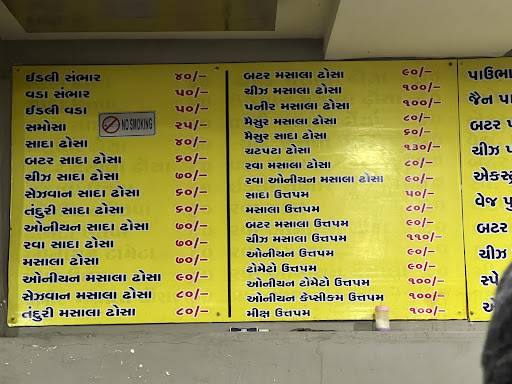 ઈડલી સંભાર ૪૦/–
વડા સંભાર ૫૦/–
ઈડલી વડા ૫૦/–
સમોસા ૨૫/–
સાદા ઢોસા ૪૦/–
બટર સાદા ઢોસા ૬૦/–
ચીઝ સાદા ઢોસા ૭૦/–
સેઝવાન સાદા ઢોસા ૬૦/–
તંદુરી સાદા ઢોસા ૬૦/–
ઓનીયન સાદા ઢોસા ૭૦/–
રવા સાદા ઢોસા ૭૦/–
મસાલા ઢોસા ૭૦/–
ઓનીયન મસાલા ઢોસા ૯૦/–
સેઝવાન મસાલા ઢોસા ૮૦/–
તંદુરી મસાલા ઢોસા ૮૦/–
NO SMOKING
બટર મસાલા ઢોસા ૯૦/–
ચીઝ મસાલા ઢોસા ૧૦૦/–
પનીર મસાલા ઢોસા ૧૦૦/–
મૈસુર મસાલા ઢોસા ૮૦/–
મૈસુર સાદા ઢોસા ૬૦/–
ચટપટા ઢોસા ૧૩૦/–
રવા મસાલા ઢોસા ૮૦/–
રવા ઓનીયન મસાલા ઢોસા ૯૦/–
સાદા ઉત્તપમ ૫૦/–
મસાલા ઉત્તપમ ૮૦/–
બટર મસાલા ઉત્તપમ ૯૦/–
ચીઝ મસાલા ઉત્તપમ ૧૧૦/–
ઓનીયન ઉત્તપમ ૯૦/–
ટોમેટો ઉત્તપમ ૯૦/–
ઓનીયન ટોમેટો ઉત્તપમ ૧૦૦/–
ઓનીયન કેપ્સીકમ ઉત્તપમ ૧૦૦/–
મીક્ષ ઉત્તપમ ૧૦૦/–
પાઉભા
જૈન પા
બટર
ચીઝ પ
એકસ્ટ્ર
વેજ પુ
બટર
ચીઝ
સ્પે